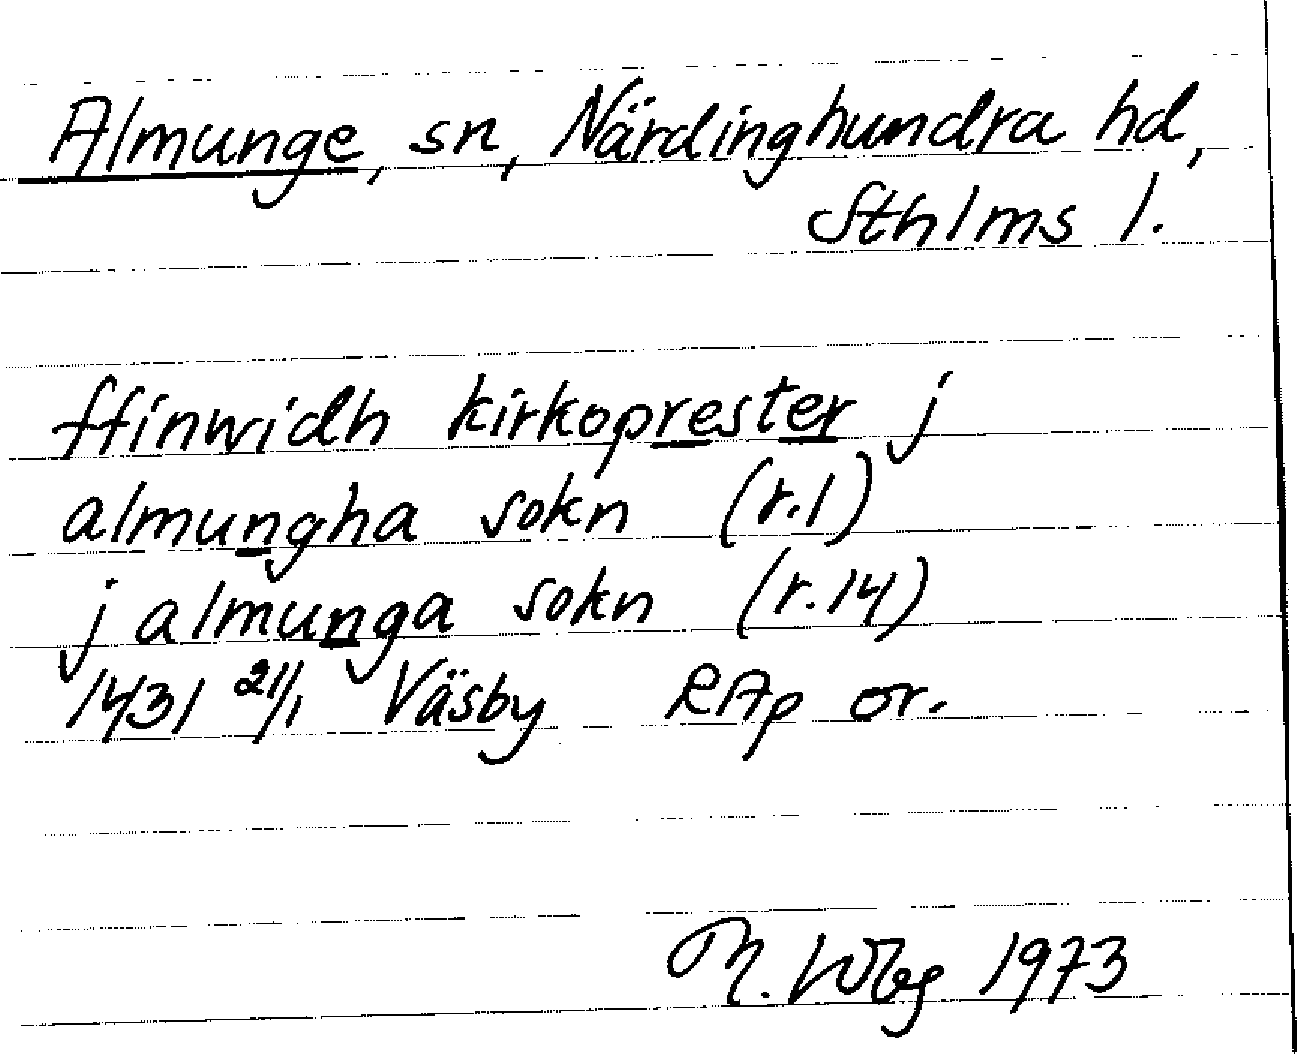 Almunge, sn, Närdinghundra hd,
Sthlms l.
ffinwidh kirkoprester j
almungha sokn (r.1)
j almunga sokn (r.14)
1431 21/1 Väsby RAp or.
M. Wbg 1973